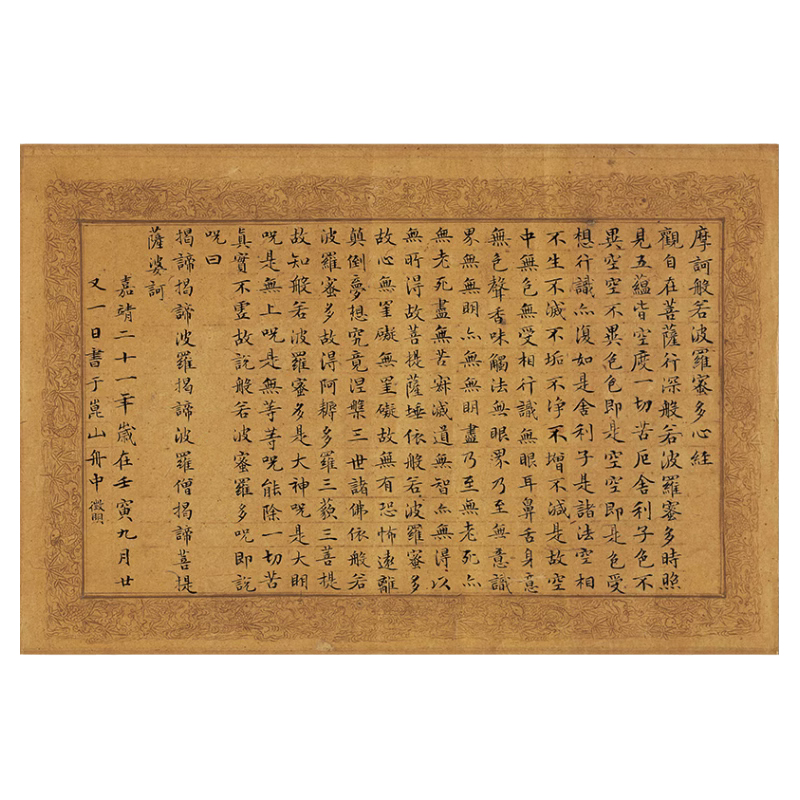 摩訶般若波羅蜜多心經
觀自在菩薩行深般若波羅蜜多時照
見五蘊皆空度一切苦厄舍利子色不
異空空不異色色即是空空即是色受
想行識亦復如是舍利子是諸法空相
不生不滅不垢不淨不增不減是故空
中無色無受相行識無眼耳鼻舌身意
無色聲香味觸法無眼界乃至無意識
界無無明亦無無明盡乃至無老死亦
無老死盡無苦滅道無智亦無得以
無所得故菩提薩埵依般若波羅蜜多
故心無罣礙無罣礙故無有恐怖遠離
顛倒夢想究竟涅槃三世諸佛依般若
波羅蜜多故得阿耨多羅三藐三菩提
故知般若波羅蜜多是大神呪是大明
呪是無上呪是無等等呪能除一切苦
真實不虛故說般若波蜜羅多呪即說
呪曰
揭諦揭諦波羅揭諦波羅僧揭諦菩提
薩婆訶
嘉靖二十一年歲在壬寅九月廿
又一日書于崑山舟中 徵明